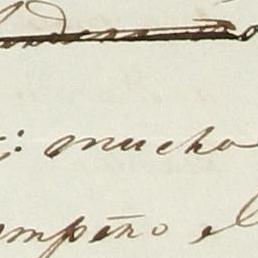 ; mucho
mpeño el